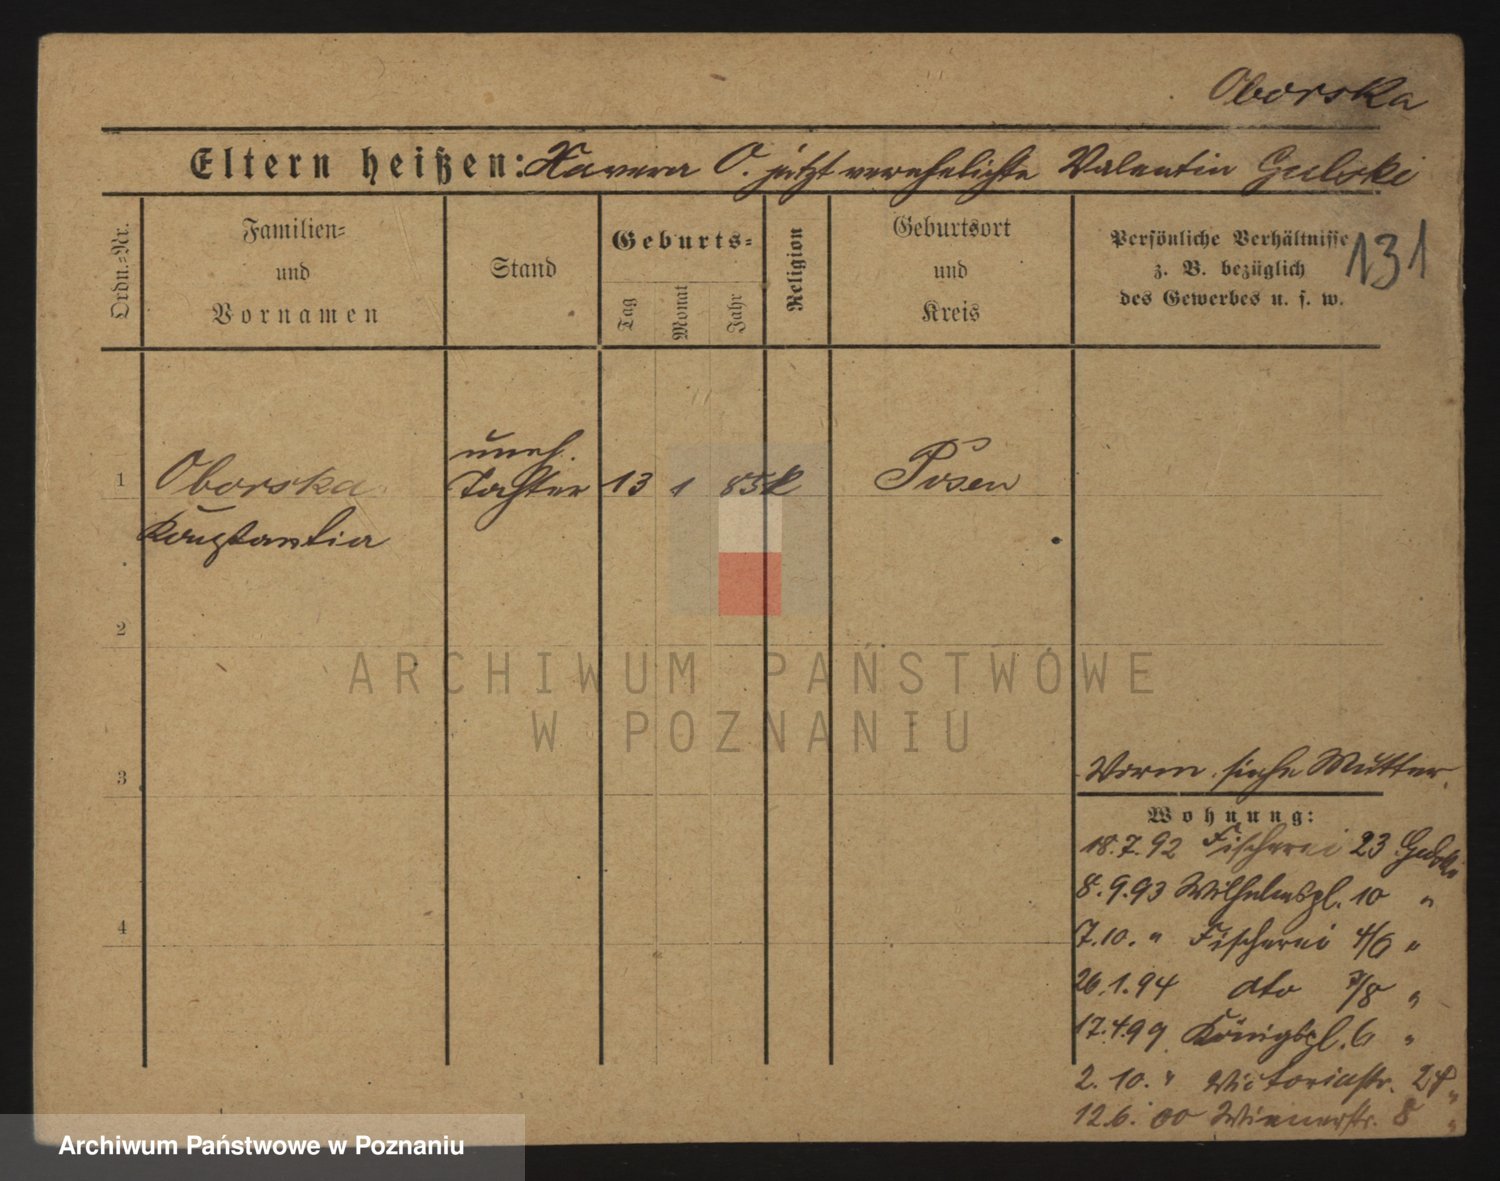 Oborska
Eltern heißen: Xavera O. jetzt verehelichte Valentin Gulski
Ordn.-Nr.
Familien-
und
Vornamen
Stand
Geburts-
Tag
Monat
Jahr
Religion
Geburtsort
und
Kreis
Persönliche Verhältnisse
z. B. bezüglich
des Gewerbes u. s. w.
131
1 Oborska unehl. Tochter 13 1 85 k Posen
Konstantia
2
3
4
ARCHIWUM PAŃSTWOWE
W POZNANIU
Vorm. siehe Mutter.
Wohnung:
18.7.92 Fischerei 23 Gulski
8.9.93 Wilhelmspl. 10 "
7.10. " Fischerei 4/6 "
26.1.94 dto 7/8 "
17.4.99 Königspl. 6 "
2.10. " Victoriastr. 24 "
12.6.00 Wienerstr. 8 "
Archiwum Państwowe w Poznaniu